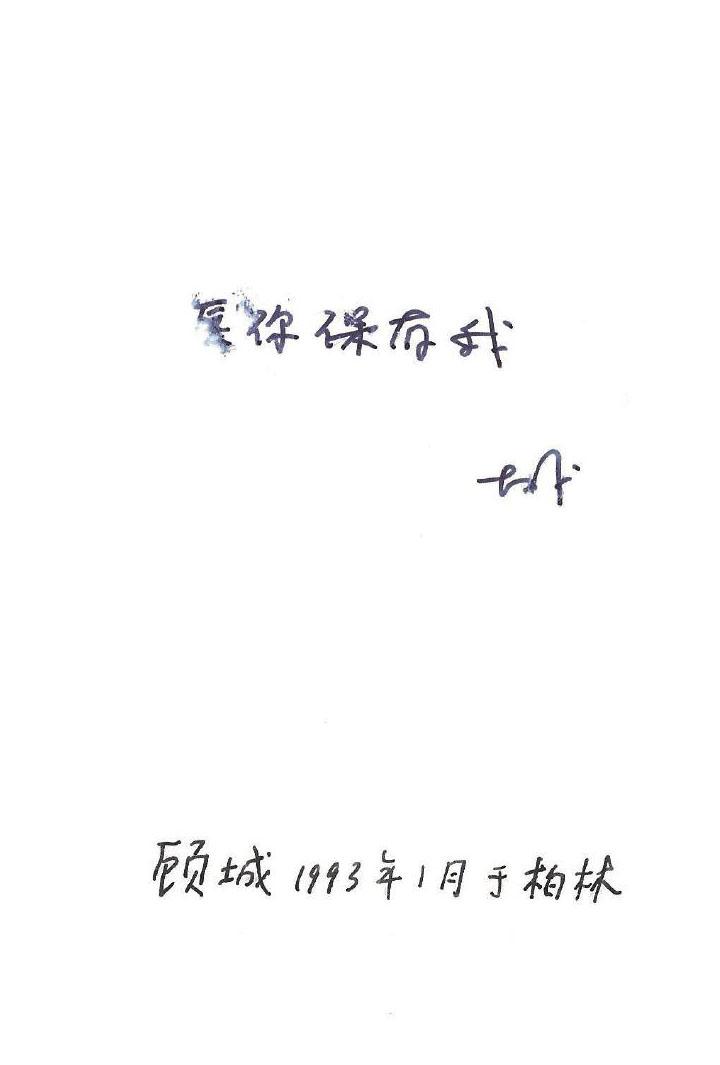 你保存我
城
顾城 1993年1月于柏林